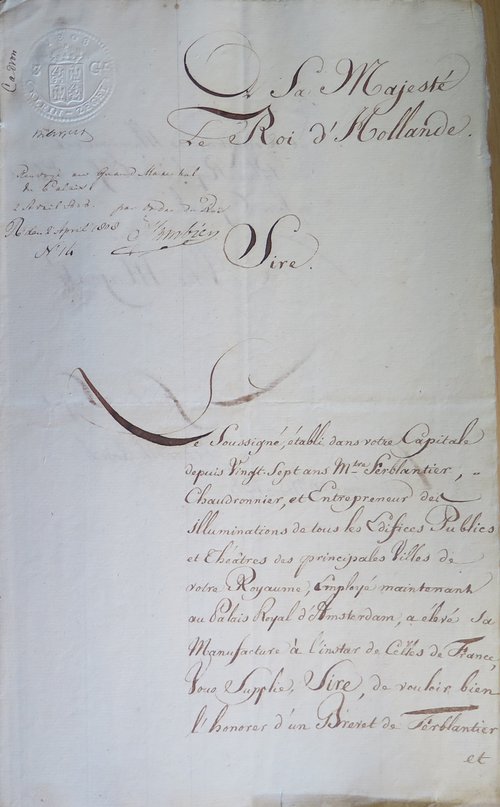 A Sa Majesté
Le Roi d'Hollande.
Renvoyé au Grand Marechal
du Palais
2 Avril 1808. par ordre du Roi
R den 2 April 1808
N° 14
Sire.
Le Soussigné, établi dans votre Capitale
depuis Vingt-Sept ans Mtre Ferblantier, -
Chaudronnier, et Entrepreneur des
illuminations de tous les Edifices Publics
et Théâtres des principales Villes de
votre Royaume, Employé maintenant
au Palais Royal d'Amsterdam, a élevé Sa
Manufacture à l'instar de Celles de France,
Vous Supplie, Sire, de vouloir bien
l'honorer d'un Brevet de Ferblantier
et